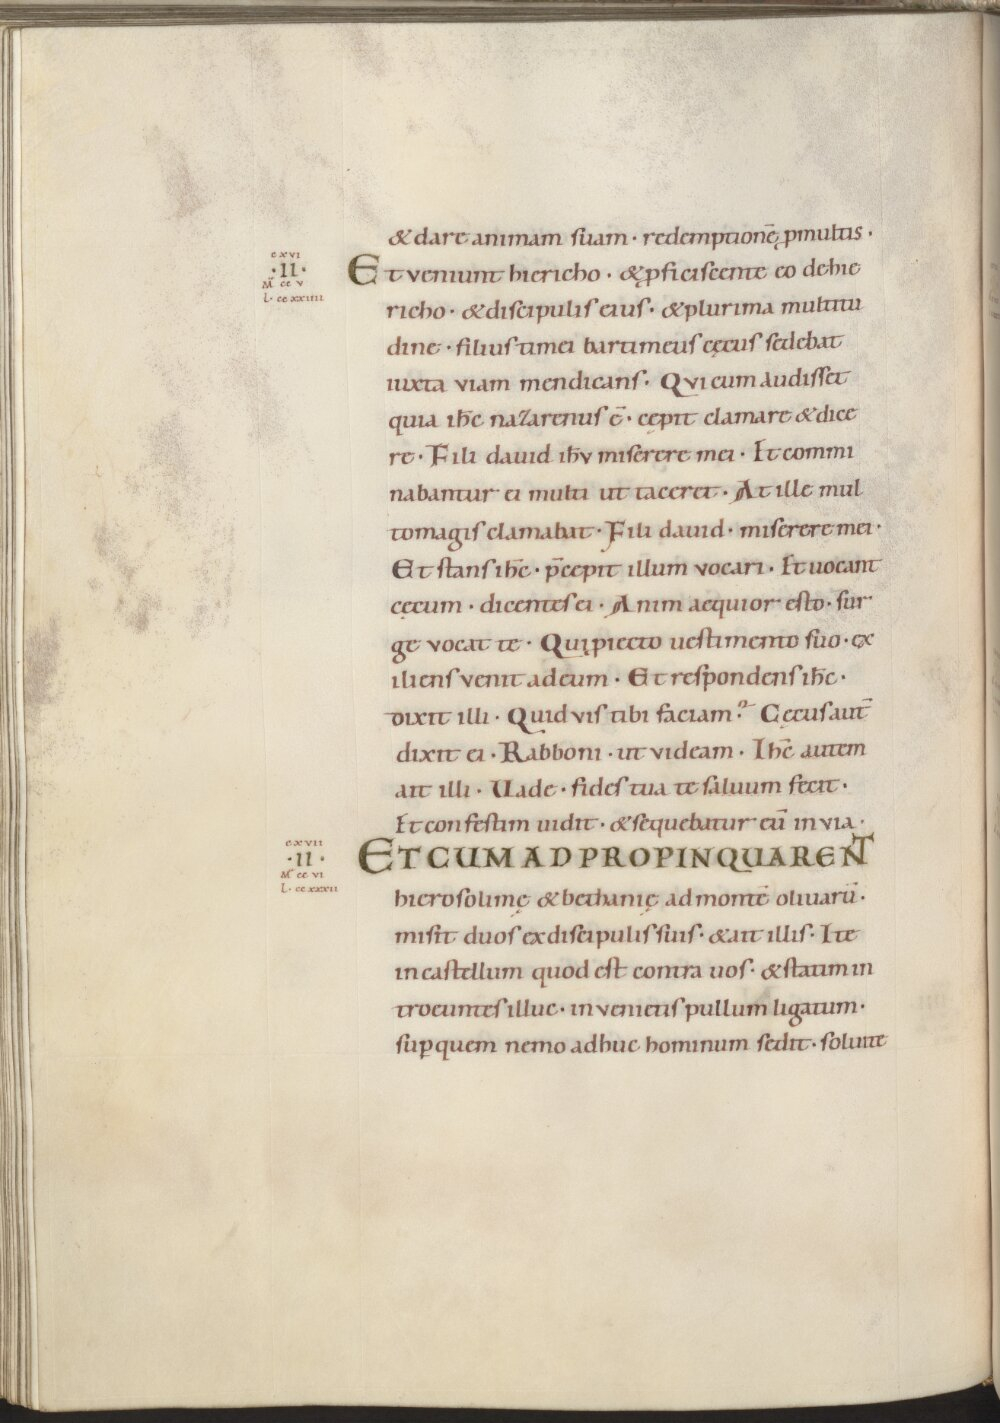 & dare animam suam · redemptionē p multis ·
cxvi
· II ·
M̄ cc v
L · cc xxiiii
Et veniunt hiericho · & pficiscente eo de hie
richo · & discipulis eius · & plurima multitu
dine · filius timei bartimeus cęcus sedebat
iuxta viam mendicans · Qvi cum audisset
quia ihc̄ nazarenus ē · cępit clamare & dice
re · Fili dauid ihv̄ miserere mei · Et commi
nabantur ei multi ut taceret · At ille mul
tomagis clamabat · Fili dauid · miserere mei ·
Et stans ihc̄ · p̄cepit illum vocari · Et uocant
cęcum · dicentes ei · Anim aequior esto · sur
ge vocat te · Qui piecto uestimento suo · ex
iliens venit ad eum · Et respondens ihc̄ ·
dixit illi · Quid vis tibi faciam ? Cęcus aut̄
dixit ei · Rabboni · ut videam · Ihc̄ autem
ait illi · Uade · fides tua te saluum fecit ·
Et confestim uidit · & sequebatur eū in via ·
cxvii
· II ·
M̄ cc vi
L · cc xxxii
ET CUM ADPROPINQUARENT
hierosolimę & bethanię ad montē oliuarū ·
misit duos ex discipulis suis · & ait illis · Ite
in castellum quod est contra uos · & statim in
troeuntes illuc · invenietis pullum ligatum ·
sup quem nemo adhuc hominum sedit · soluite